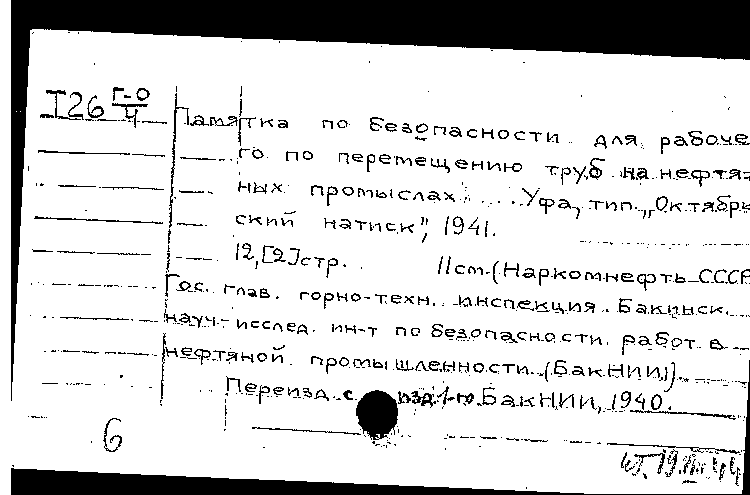 I26 Г-0/4
Памятка по безопасности для рабоче
го по перемещению труб на нефтя-
ных промыслах. ... Уфа, тип. „Октябрь
ский натиск", 1941.
12,[2]стр. 11см.(Наркомнефть СССР.
Гос. глав. горно-техн. инспекция. Бакинск.
науч.-исслед. ин-т по безопасности работ в
нефтяной промышленности.(БакНИИ)).
Переизд. с изд. 1-го БакНИИ, 1940.
6